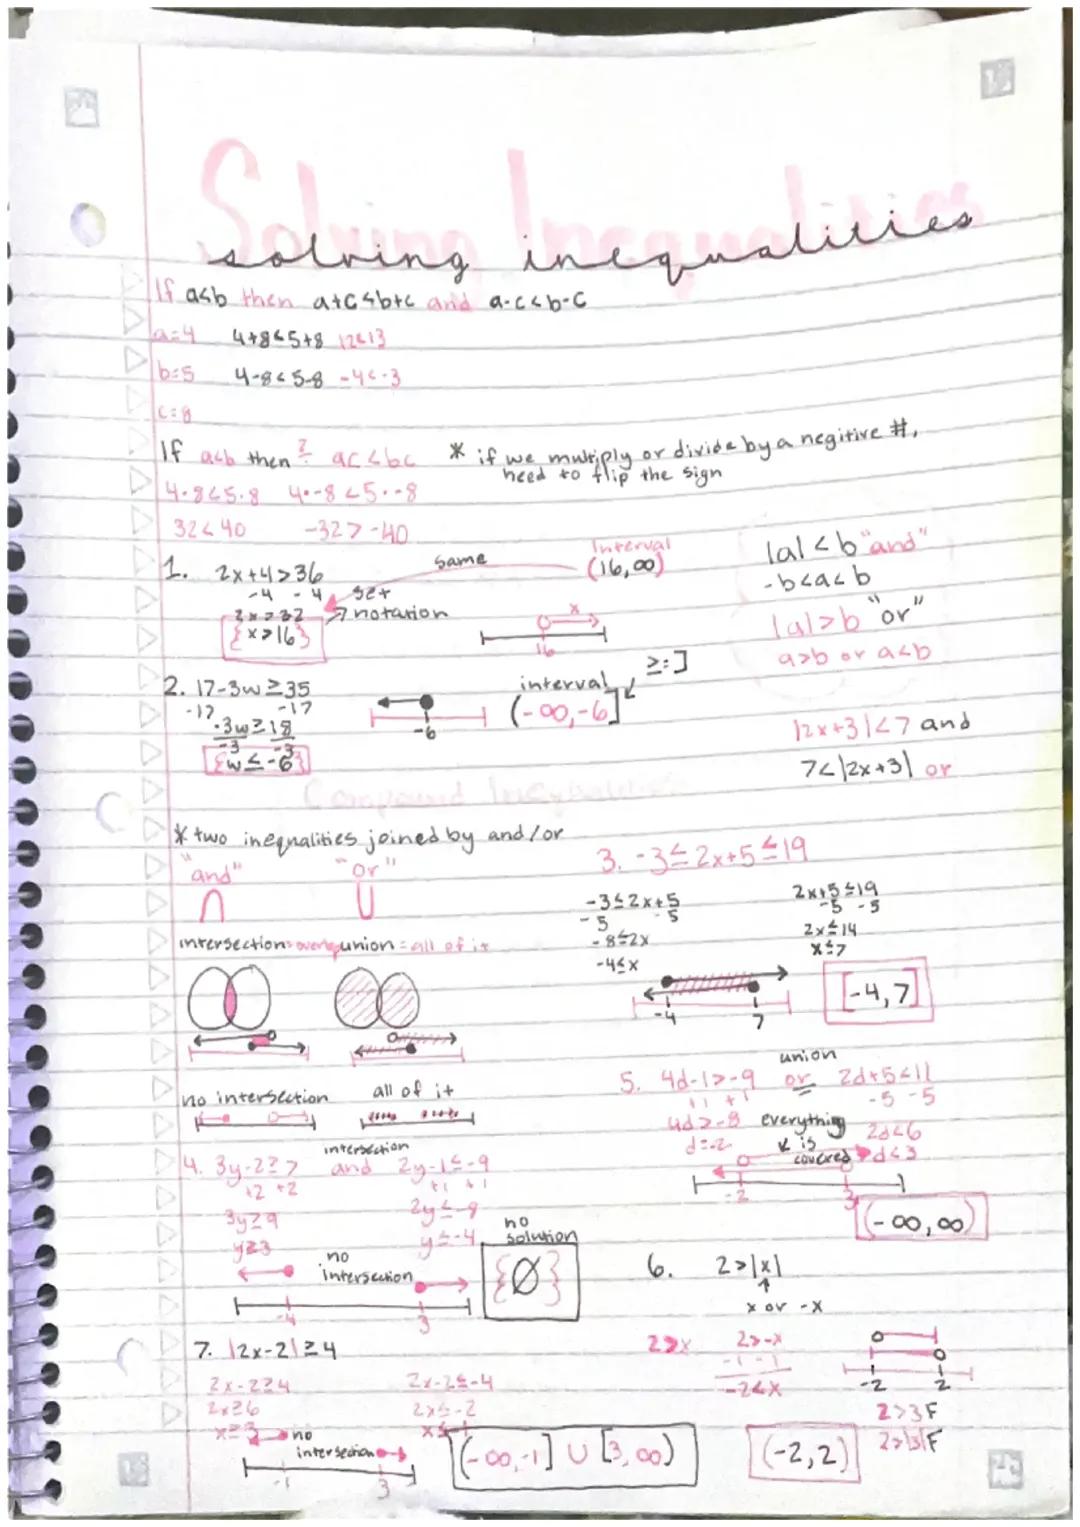 Solving Inequalities
solving inequalities
If a<b then a+c<b+c and a-c<b-c
a=4 4+8<5+8 12<13
b=5 4-8<5-8 -4<-3
c=8
If a<b then ? ac<bc * if we multiply or divide by a negitive #,
need to flip the sign
4·8<5·8 4·-8<5·-8
32<40 -32>-40
1. 2x+4>36
-4 -4
2x>32
{x>16}
same
set
notation
Interval
(16,∞)
x
16
|a|<b "and"
-b<a<b
|a|>b "or"
a>b or a<b
2. 17-3w≥35
-17 -17
-3w≥18
-3 -3
{w≤-6}
-6
interval
(-∞,-6]
≥=]
|2x+3|<7 and
7<|2x+3| or
Compound Inequalities
* two inequalities joined by and/or
"and" "or"
∩ U
intersection=overlap union=all of it
no intersection all of it
3. -3≤2x+5≤19
-3≤2x+5 2x+5≤19
-5 -5 -5 -5
-8≤2x 2x≤14
-4≤x x≤7
-4 7
[-4,7]
4. 3y-2≥7 intersection and 2y-1≤-9
+2 +2 +1 +1
3y≥9 2y≤-8
y≥3 y≤-4
no
intersection
-4 3
no
solution
{Ø}
union
5. 4d-1>-9 or 2d+5<11
+1 +1 -5 -5
4d>-8 2d<6
d=-2 d<3
everything
is
covered
-2 3
(-∞,∞)
6. 2>|x|
x or -x
2>x 2>-x
-1 -1
-2<x
-2 2
2>3 F
2>|3| F
(-2,2)
7. |2x-2|≥4
2x-2≥4 2x-2≤-4
2x≥6 2x≤-2
x≥3 x≤-1
no
intersection
-1 3
(-∞,-1] U [3,∞)